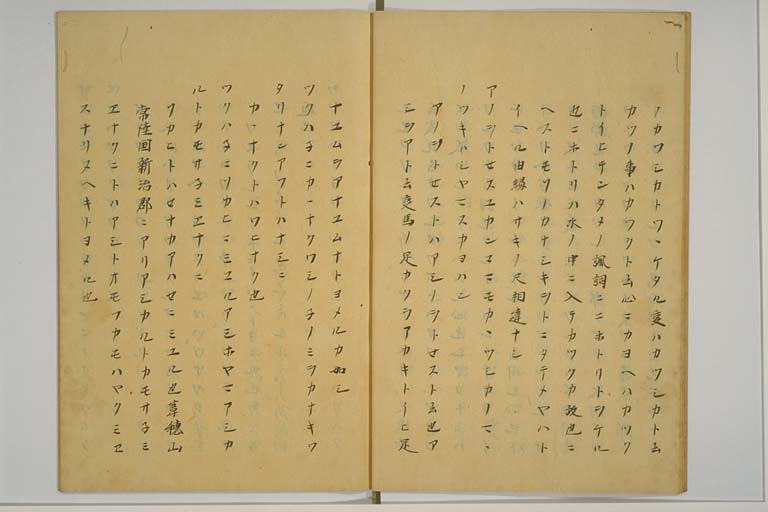 ノカツシカトツヽケタル変ハカツシカト云
カツノ事ハカツクト云心ニカヨヘハカツク
トイヒテンタメノ諷詞ニニホトリトヲケル
也ニホトリハ水ノ中ニ入テカツクカ故也ニ
ヘストモソノカナシキヲトニタテメヤハト
イヘル由縁ハサキノ尺相違ナシ
アノヲトセスユカンコマモカヽツシカノマヽ
ノツキハシヤマスカヨハン
アノヲトセストハアシノヲトセスト云也ア
ミヲアト云変馬ノ足カツヲアカキトイヒ足
ナエムヲアナエムナトヨメルカ如シ
ツクハネニカヽナクワシノネノミヲカナキワ
タリナンアフトハナミニ
カヽナクトハワヒナク也
ツクハネニソカヒニミエルアシホヤマアシカ
ルトカモサネミエナクニ
ソカヒトハセナカアハセニミエル也葦穂山
常陸国新治郡ニアリアシカルトカモサネミ
エナクニトハアシトオモフカモハヤクミセ
スナリヌヘキトヨメル也